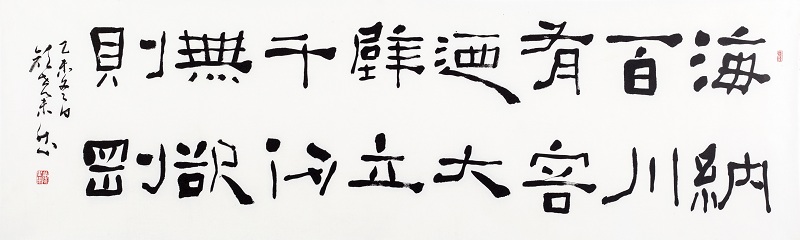 海納
百川
有容
迺大
壁立
千仞
無欲
則剛
乙未